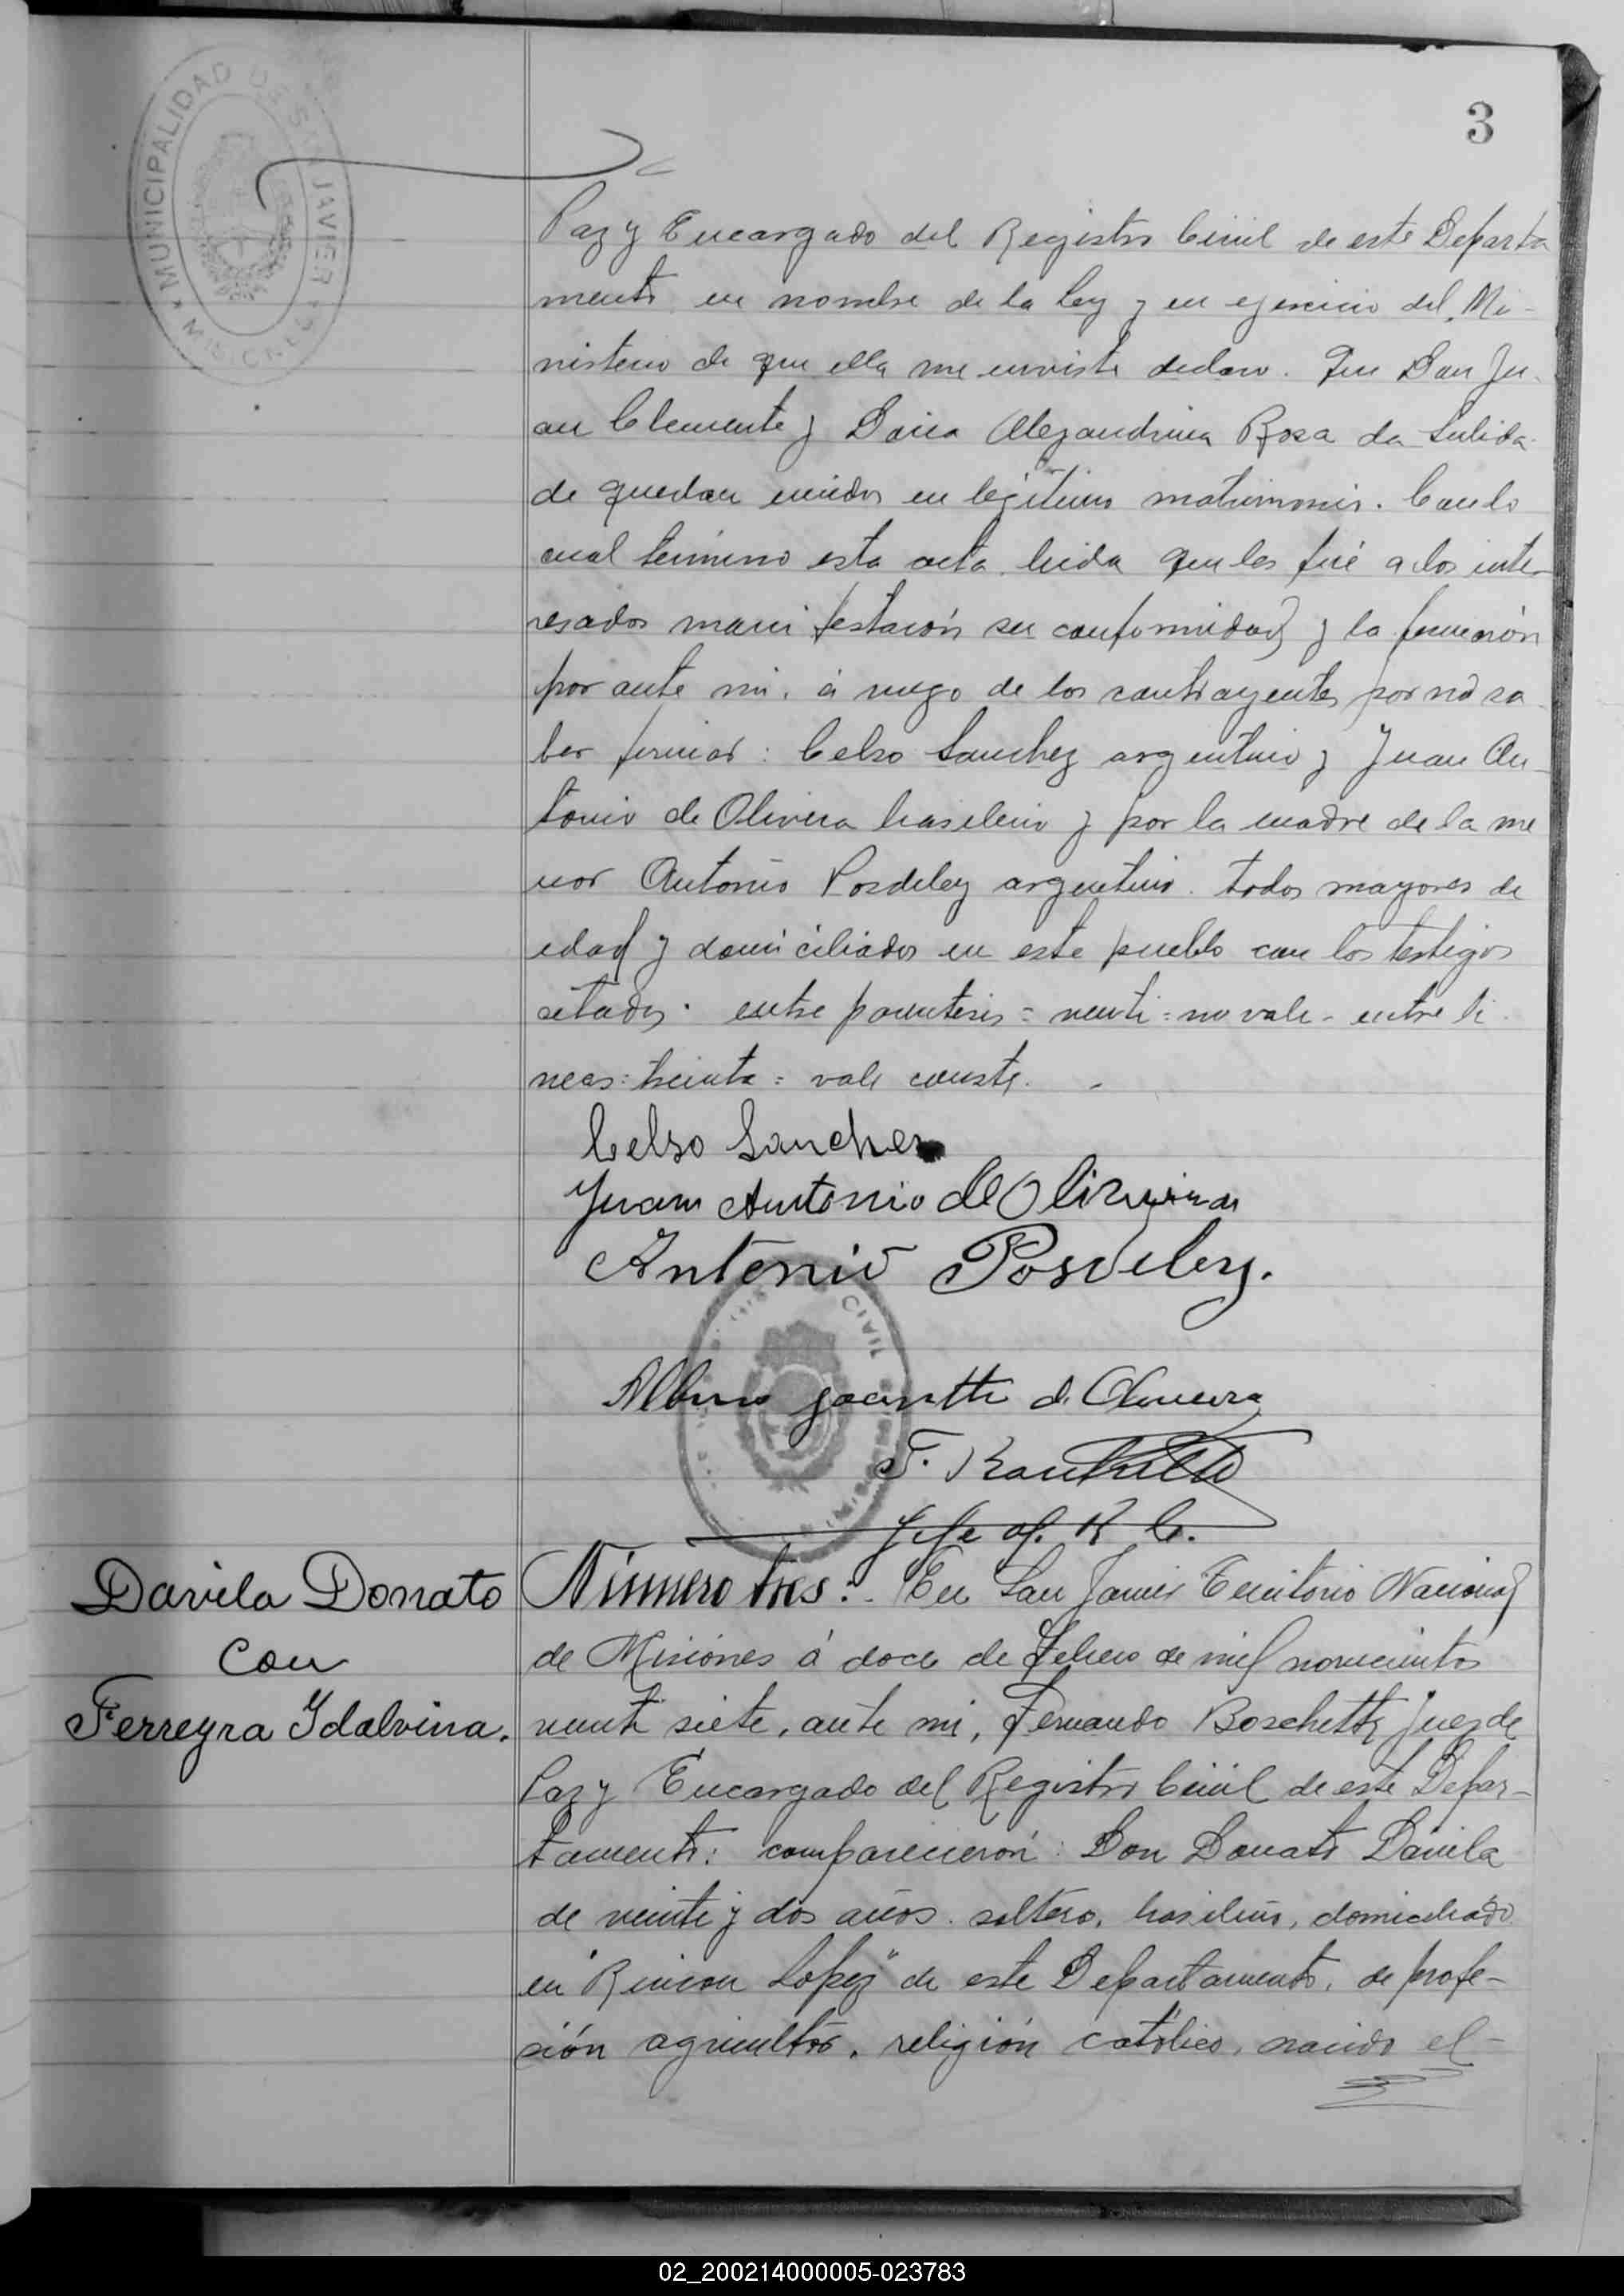 3
MUNICIPALIDAD DE SAN JAVIER
MISIONES
Paz y Encargado del Registro Civil de este Departa
mento en nombre de la Ley y en ejercicio del Mi-
nisterio de que ella me enviste declaro. Que Don Ju-
an Clemente y Doña Alejandrina Rosa da Sulida-
de quedan unidos en legitimo matrimonio. Con lo
cual termino esta acta leida que les fué a los inte-
resados manifestarón su conformidad y la firmarón
por ante mi, á ruego de los contrayentes por nó sa
ber firmar: Celso Sanchez argentino y Juan An-
tonio de Olivera brasilero y por la madre de la me
nor Antonio Posdeley argentino. todos mayores de
edad y domiciliados en este pueblo con los testigos
citados. entre parentesis = veinti = no vale - entre li-
neas: treinta = vale conste. -
Celso Sanchez
Juan Antonio de Oliveira
Antonio Posdeley.
CIVIL
Albino Jacintho d. Oliveira
F. Boschetti
Jefe of. R C.
Davila Donato
con
Ferreyra Idalvina.
Número tres:. En San Javier Territorio Nacional
de Misiones á doce de Febrero de mil novecientos
veinti siete, ante mi, Fernando Boschetti, Juez de
Paz y Encargado del Registro Civil de este Depar-
tamento: comparecierón: Don Donato Davila
de veinte y dos años. soltero, brasilero, domiciliado
en "Rincon Lopez" de este Departamento, de profe-
sión agricultor, religión católico, nacido el-
02_200214000005-023783